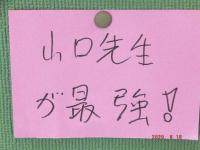 山口先生
が最強!
2020. 8 18